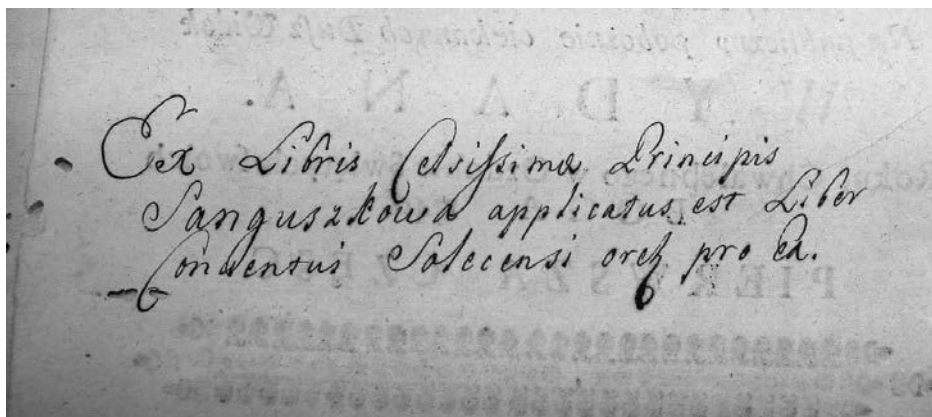 Ex Libris Celsissimæ Principis
Sanguszkowa applicatus est Liber
Conventus Solecensi pro Ea.